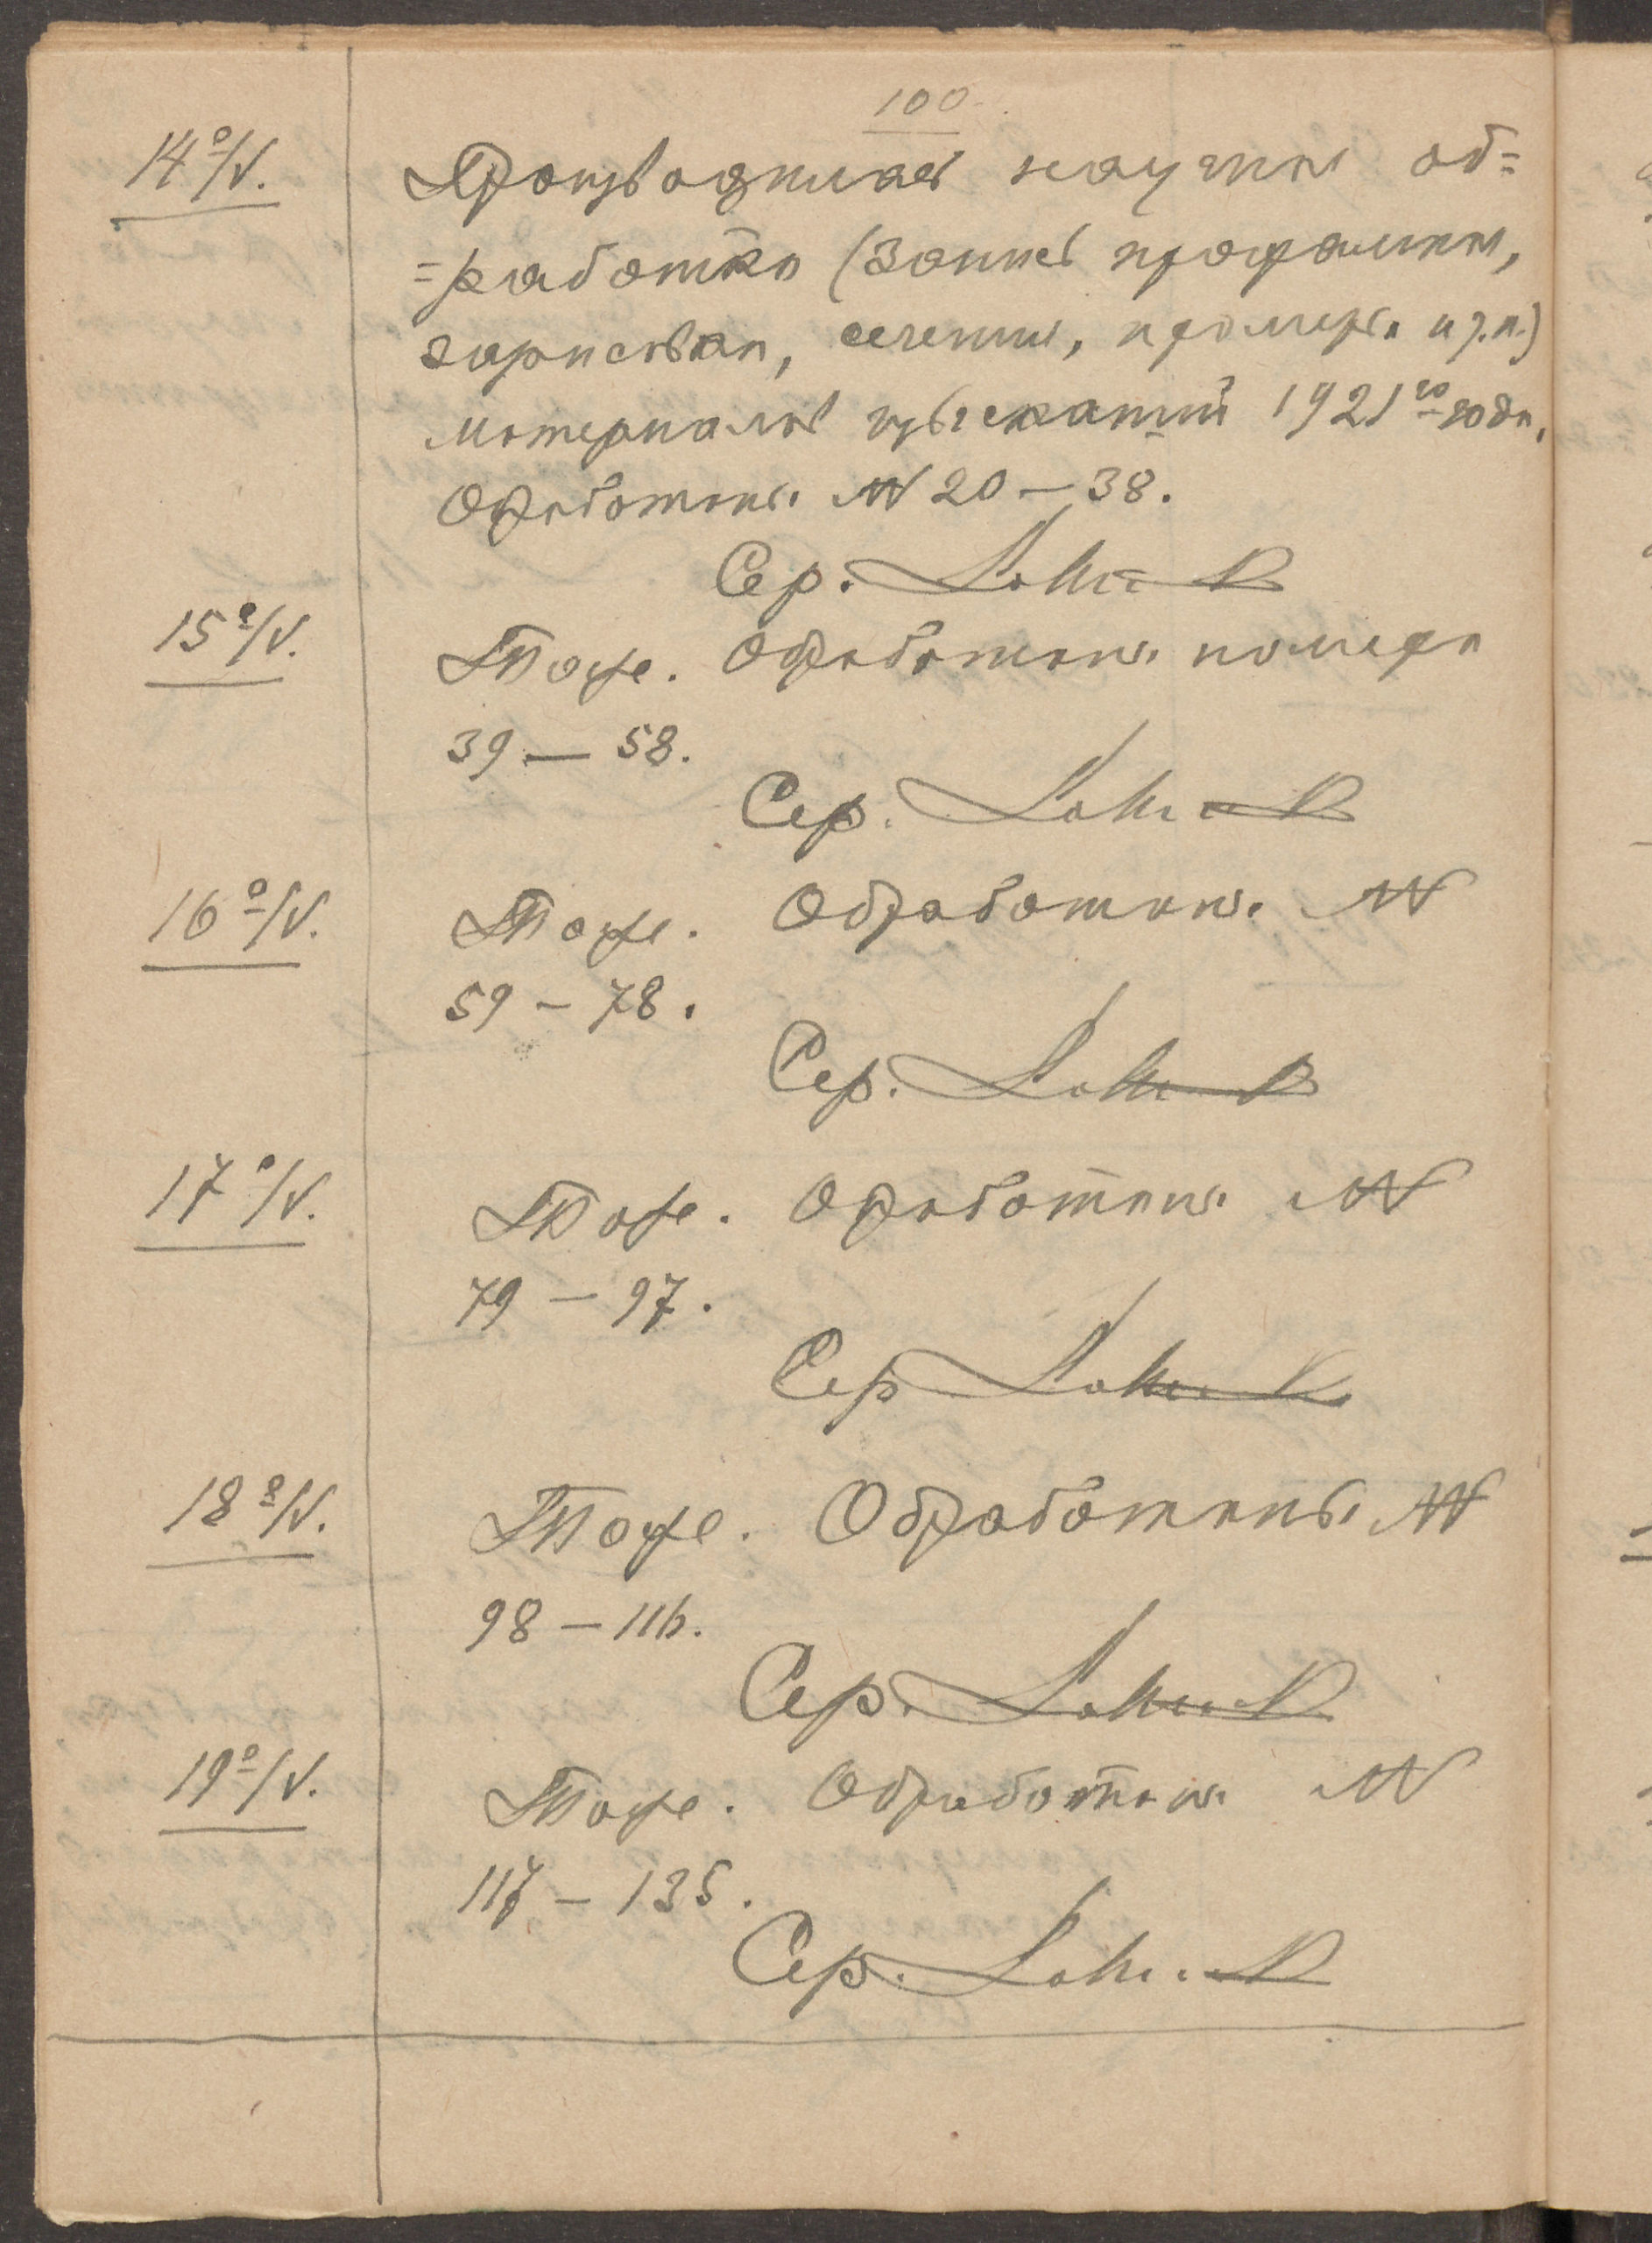 100
14º/V. Производилась научная об=
=работка (Запись программы,
зарисовка, сечения, промеры и т.п.)
материалов изысканий 1921го года.
Обработаны №№ 20 — 38.
Сер.
15º/V. Тоже. Обработаны номера
39 — 58.
Сер.
16º/V. Тоже. Обработаны №№
59 — 78.
Сер.
17º/V. Тоже. Обработаны №№
79 — 97.
Сер
18º/V. Тоже. Обработаны №№
98 — 116.
Сер.
19º/V. Тоже. Обработаны №№
117 — 135.
Сер.